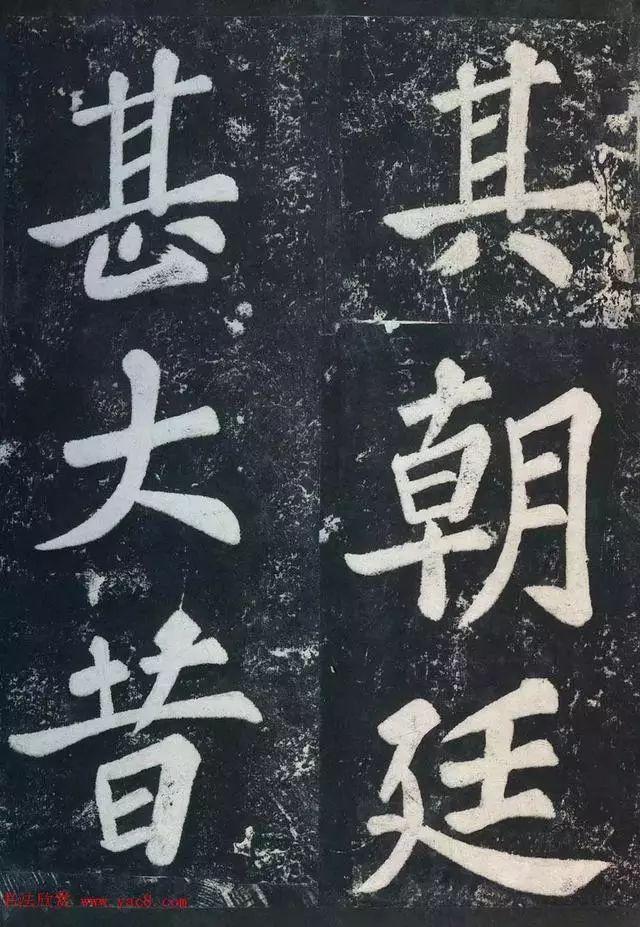 其朝廷
甚大昔
书法欣赏 www.yac8.com